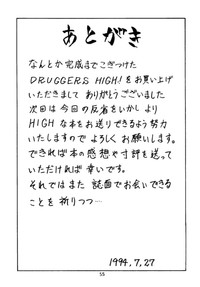 あとがき
なんとか完成までこぎつけた
DRUGGERS HIGH!をお買い上げ
いただきまして ありがとうございました
次回は今回の反省をいかし より
HIGHな本をお送りできるよう努力
いたしますので よろしくお願いします。
できれば本の感想や寸評を送って
いただければ 幸いです。
それではまた 誌面でお会いできる
ことを 祈りつつ……
1994.7.27
55